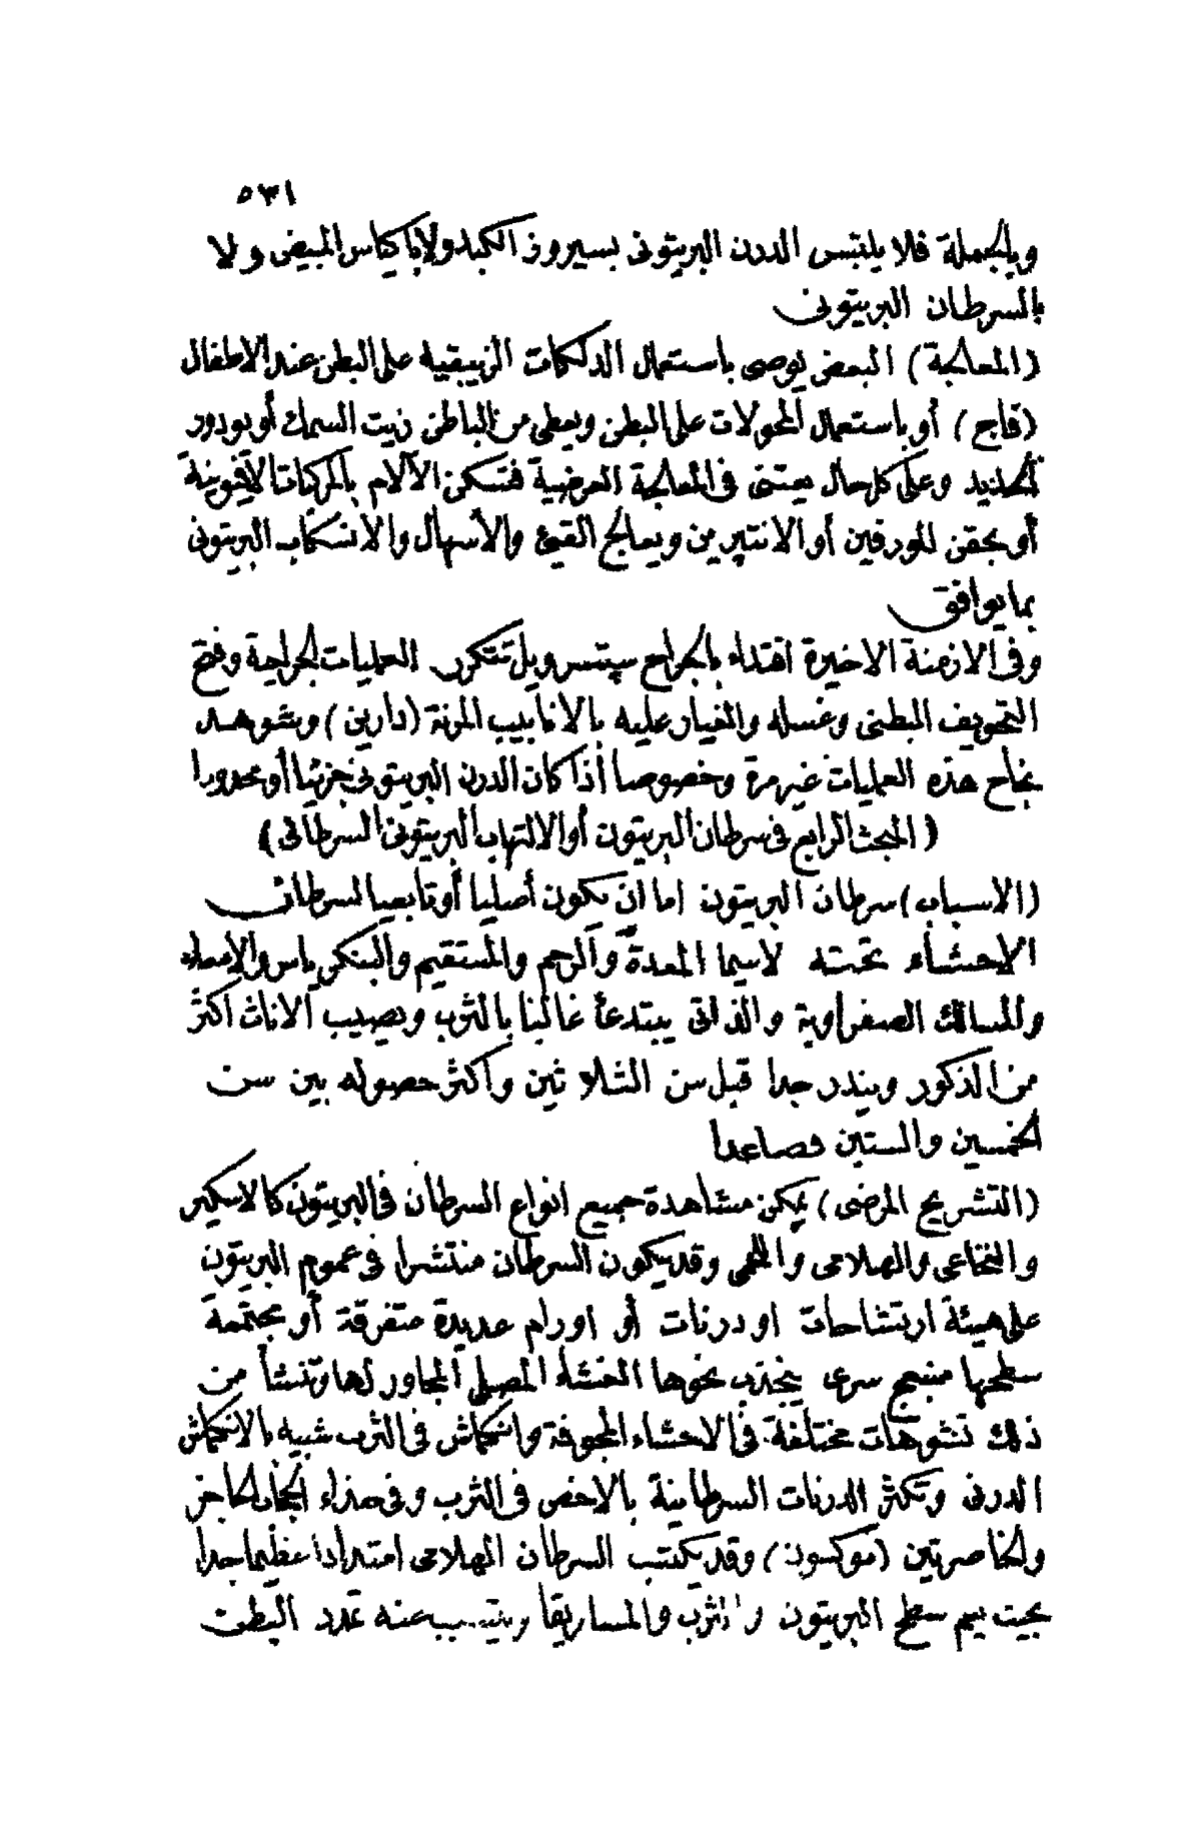 ٥٣١
وبالجملة فلا يلتبس الدرن البريتونى بسيروز الكبد ولا باكياس المبيض ولا
بالسرطان البريتونى
(المعالجة) البعض يوصى باستعمال الدلكات الزيبقيه على البطن عند الاطفال
(قاج) أو باستعمال المحولات على البطن ويعطى من الباطن زيت السمك أو يودور
الحديد وعلى كل حال يعتنى فى المعالجة العرضية فتسكن الآلام بالمركبات الافيونية
أو بحقن المورفين أو الانتپرين ويعالج القيئ والأسهال والأنسكاب البريتونى
بما يوافق
وفى الازمنة الاخيرة اقتداء بالجراح سپنسر ويلز تتكرر العمليات الجراحية وفتح
التجويف البطنى وغسله والغيار عليه بالانابيب المرنة (دارين) وشوهد
نجاح هذه العمليات غير مرة وخصوصا أذا كان الدرن البريتونى جزئيا أو محدودا
(المبحث الرابع فى سرطان البريتون أو الالتهاب البريتونى السرطانى)
(الاسباب) سرطان البريتون اما ان يكون أصليا أو تابعيا لسرطان
الاحشاء تحته لاسيما المعدة والرحم والمستقيم والبنكرياس والامعاء
والمسالك الصفراوية والذاتى يبتدئ غالبا بالثرب ويصيب الاناث اكثر
من الذكور ويندر جدا قبل سن الثلاثين واكثر حصوله بين سن
الخمسين والستين فصاعدا
(التشريح المرضى) يمكن مشاهدة جميع انواع السرطان فى البريتون كالاسكير
والنخاعى والهلامى واللحمى وقد يكون السرطان منتشرا فى عموم البريتون
على هيئة ارتشاحات او درنات أو اورام عديدة متفرقة أو مجتمعة
سطحها منبعج سرى ينجذب نحوها الغشاء المصلى المجاور لها وتنشأ من
ذلك تشوهات مختلفة فى الاحشاء المجوفة وانكماش فى الثرب شبيه بالانكماش
الدرنى وتكثر الدرنات السرطانية بالاخص فى الثرب وفى حذاء الحجاب الحاجز
والخاصرتين (موكسون) وقد يكتسب السرطان الهلامى امتدادا عظيما جدا
بحيث يعم سطح البريتون والثرب والمساريقا ويتسبب عنه تمدد البطن